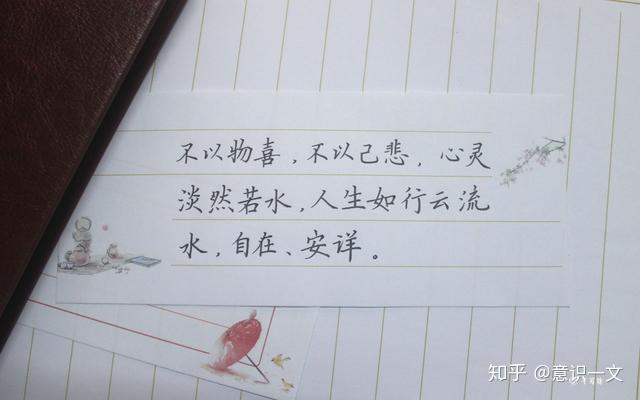 不以物喜，不以己悲，心灵
淡然若水，人生如行云流
水，自在、安详。
知乎 @意识一文